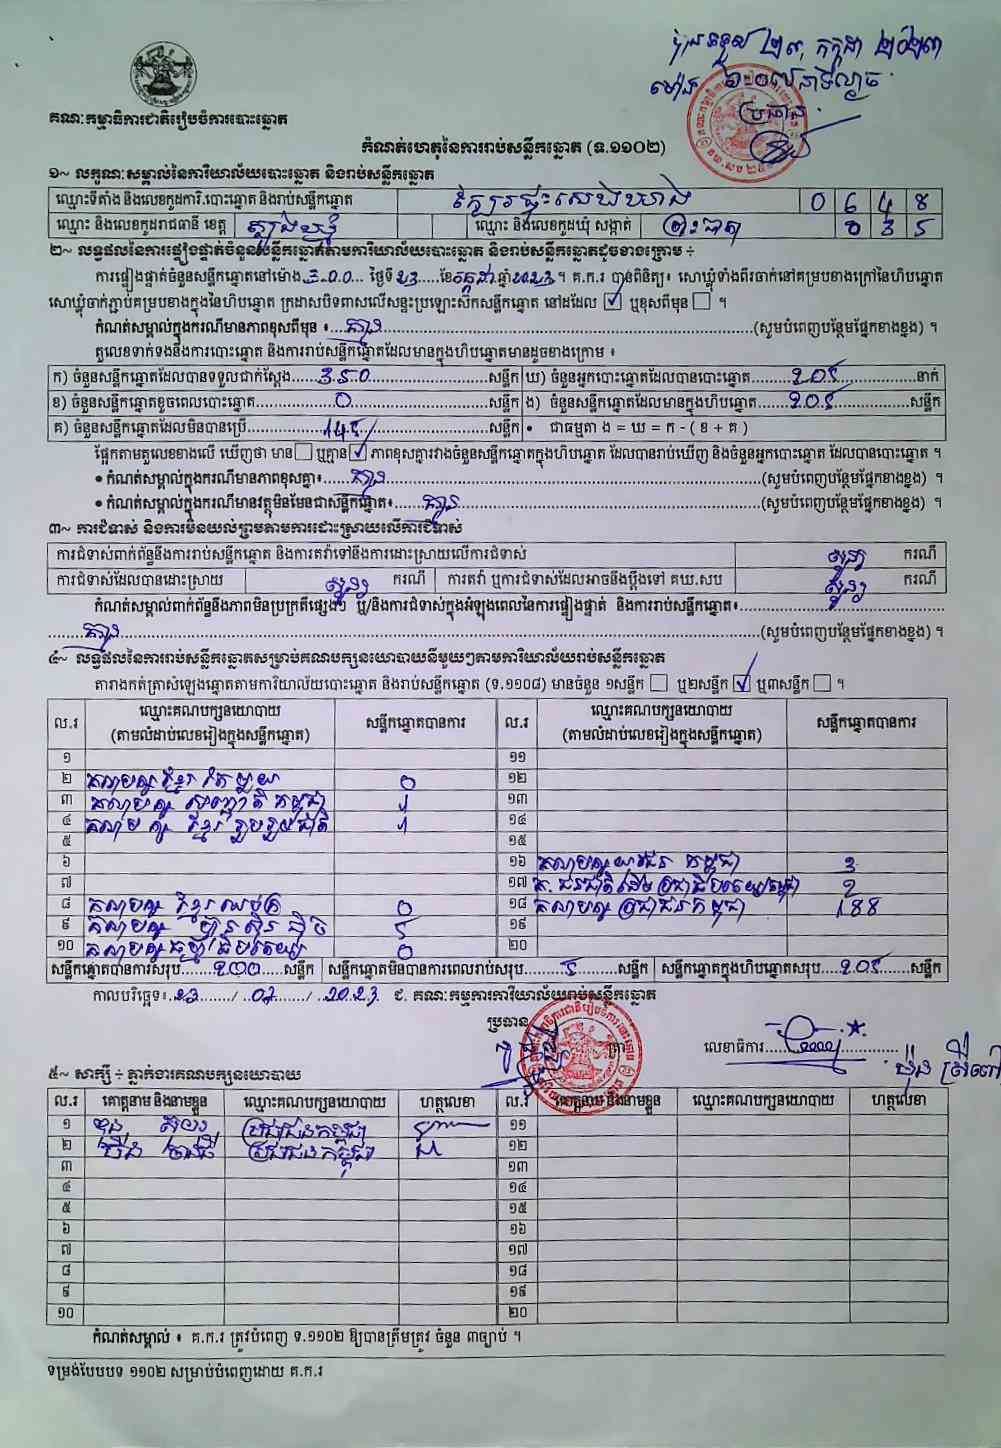 បានទទួល ២៣ កក្កដា ២០២៣
ម៉ោង ៦:០៧នាទីល្ងាច
ប្រធាន
គណៈកម្មាធិការជាតិរៀបចំការបោះឆ្នោត
កំណត់ហេតុនៃការរាប់សន្លឹកឆ្នោត (ទ.១១០២)
១~ លក្ខណៈសម្គាល់នៃការិយាល័យបោះឆ្នោត និងរាប់សន្លឹកឆ្នោត
ឈ្មោះទីតាំង និងលេខកូដការិ.បោះឆ្នោត និងរាប់សន្លឹកឆ្នោត 0 6 4 8
ឈ្មោះ និងលេខកូដរាជធានី ខេត្ត ត្បូងឃ្មុំ ឈ្មោះ និងលេខកូដឃុំ សង្កាត់
២~ លទ្ធផលនៃការផ្ទៀងផ្ទាត់ចំនួនសន្លឹកឆ្នោតតាមការិយាល័យបោះឆ្នោត និងរាប់សន្លឹកឆ្នោតដូចខាងក្រោម ÷
ការផ្ទៀងផ្ទាត់ចំនួនសន្លឹកឆ្នោតនៅម៉ោង 3:00 ថ្ងៃទី 23 ខែ កក្កដា ឆ្នាំ 2023 ។ គ.ក.រ បានពិនិត្យ៖ សោឃ្លុំទាំងពីរចាក់នៅគម្របខាងក្រៅនៃហិបឆ្នោត
សោឃ្លុំចាក់ភ្ជាប់គម្របខាងក្នុងនៃហិបឆ្នោត ក្រដាសបិទពាសលើសន្ទះប្រឡោះស៊ីកសន្លឹកឆ្នោត នៅដដែល ☑ ឬខុសពីមុន ☐ ។
កំណត់សម្គាល់ក្នុងករណីមានភាពខុសពីមុន ៖ គ្មាន (សូមបំពេញបន្ថែមផ្នែកខាងខ្នង) ។
តួលេខទាក់ទងនឹងការបោះឆ្នោត និងការរាប់សន្លឹកឆ្នោតដែលមានក្នុងហិបឆ្នោតមានដូចខាងក្រោម ៖
ក) ចំនួនសន្លឹកឆ្នោតដែលបានទទួលជាក់ស្តែង 350 សន្លឹក ឃ) ចំនួនអ្នកបោះឆ្នោតដែលបានបោះឆ្នោត 205 នាក់
ខ) ចំនួនសន្លឹកឆ្នោតខូចពេលបោះឆ្នោត 0 សន្លឹក ង) ចំនួនសន្លឹកឆ្នោតដែលមានក្នុងហិបឆ្នោត 205 សន្លឹក
គ) ចំនួនសន្លឹកឆ្នោតដែលមិនបានប្រើ 145 សន្លឹក • ជាធម្មតា ង = ឃ = ក - ( ខ + គ )
ផ្អែកតាមតួលេខខាងលើ ឃើញថា មាន ☐ ឬគ្មាន ☑ ភាពខុសគ្នារវាងចំនួនសន្លឹកឆ្នោតក្នុងហិបឆ្នោត ដែលបានរាប់ឃើញ និងចំនួនអ្នកបោះឆ្នោត ដែលបានបោះឆ្នោត ។
• កំណត់សម្គាល់ក្នុងករណីមានភាពខុសគ្នា៖ គ្មាន (សូមបំពេញបន្ថែមផ្នែកខាងខ្នង) ។
• កំណត់សម្គាល់ក្នុងករណីមានវត្ថុមិនមែនជាសន្លឹកឆ្នោត៖ គ្មាន (សូមបំពេញបន្ថែមផ្នែកខាងខ្នង) ។
៣~ ការជំទាស់ និងការមិនយល់ព្រមតាមការដោះស្រាយលើការជំទាស់
ការជំទាស់ពាក់ព័ន្ធនឹងការរាប់សន្លឹកឆ្នោត និងការតវ៉ាទៅនឹងការដោះស្រាយលើការជំទាស់ សូន្យ ករណី
ការជំទាស់ដែលបានដោះស្រាយ សូន្យ ករណី ការតវ៉ា ឬការជំទាស់ដែលអាចនឹងប្តឹងទៅ គឃ.សប សូន្យ ករណី
កំណត់សម្គាល់ពាក់ព័ន្ធនឹងភាពមិនប្រក្រតីផ្សេងៗ ឬ/និងការជំទាស់ក្នុងអំឡុងពេលនៃការផ្ទៀងផ្ទាត់ និងការរាប់សន្លឹកឆ្នោត៖
គ្មាន (សូមបំពេញបន្ថែមផ្នែកខាងខ្នង) ។
៤~ លទ្ធផលនៃការរាប់សន្លឹកឆ្នោតសម្រាប់គណបក្សនយោបាយនីមួយៗតាមការិយាល័យរាប់សន្លឹកឆ្នោត
តារាងកត់ត្រាសំឡេងឆ្នោតតាមការិយាល័យបោះឆ្នោត និងរាប់សន្លឹកឆ្នោត (ទ.១១០៨) មានចំនួន ១សន្លឹក ☐ ឬ២សន្លឹក ☑ ឬ៣សន្លឹក ☐ ។
ល.រ ឈ្មោះគណបក្សនយោបាយ (តាមលំដាប់លេខរៀងក្នុងសន្លឹកឆ្នោត) សន្លឹកឆ្នោតបានការ ល.រ ឈ្មោះគណបក្សនយោបាយ (តាមលំដាប់លេខរៀងក្នុងសន្លឹកឆ្នោត) សន្លឹកឆ្នោតបានការ
១ ១១
២ គណបក្សខ្មែររីកចម្រើន 0 ១២
៣ គណបក្ស សញ្ជាតិកម្ពុជា 1 ១៣
៤ គណបក្ស ខ្មែររួបរួមជាតិ 1 ១៤
៥ ១៥
៦ ១៦ គណបក្សយុវជនកម្ពុជា 3
៧ ១៧ គ.ជនជាតិដើមប្រជាធិបតេយ្យកម្ពុជា 2
៨ គណបក្ស ខ្មែរឈប់ក្រ 0 ១៨ គណបក្សប្រជាជនកម្ពុជា 188
៩ គណបក្ស 5 ១៩
១០ គណបក្សធម្មាធិបតេយ្យ 0 ២០
សន្លឹកឆ្នោតបានការសរុប 200 សន្លឹក សន្លឹកឆ្នោតមិនបានការពេលរាប់សរុប 5 សន្លឹក សន្លឹកឆ្នោតក្នុងហិបឆ្នោតសរុប 205 សន្លឹក
កាលបរិច្ឆេទ៖ 23 / 07 / 2023 ជ. គណៈកម្មការការិយាល័យរាប់សន្លឹកឆ្នោត
ប្រធាន
ត្រា លេខាធិការ
៥~ សាក្សី ÷ ភ្នាក់ងារគណបក្សនយោបាយ
ល.រ គោត្តនាម និងនាមខ្លួន ឈ្មោះគណបក្សនយោបាយ ហត្ថលេខា ល.រ គោត្តនាម និងនាមខ្លួន ឈ្មោះគណបក្សនយោបាយ ហត្ថលេខា
១ ប្រជាជនកម្ពុជា ១១
២ ប្រជាជនកម្ពុជា ១២
៣ ១៣
៤ ១៤
៥ ១៥
៦ ១៦
៧ ១៧
៨ ១៨
៩ ១៩
១០ ២០
កំណត់សម្គាល់ ៖ គ.ក.រ ត្រូវបំពេញ ទ.១១០២ ឱ្យបានត្រឹមត្រូវ ចំនួន ៣ច្បាប់ ។
ទម្រង់បែបបទ ១១០២ សម្រាប់បំពេញដោយ គ.ក.រ